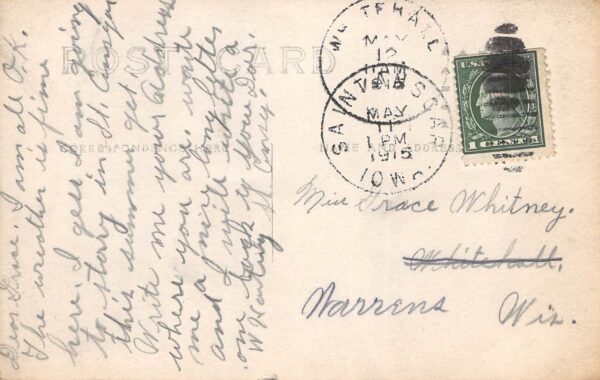 POST CARD
CORRESPONDENCE HERE
NAME AND ADDRESS
Dear Grace. I am all O.K.
The weather is fine
here. I gess I am going
to stay in St. Ansgar
this summer
Write me your address
where you are. write
me a nice long letter
and I will write
one back to you
St. Ansg.
WHITEHALL
MAY
12
11AM
1915
SAINT ANSGAR
MAY
11
1 PM
1915
IOWA
U.S.
1 CENT 1
Miss Grace Whitney.
Whitehall,
Warrens Wis.